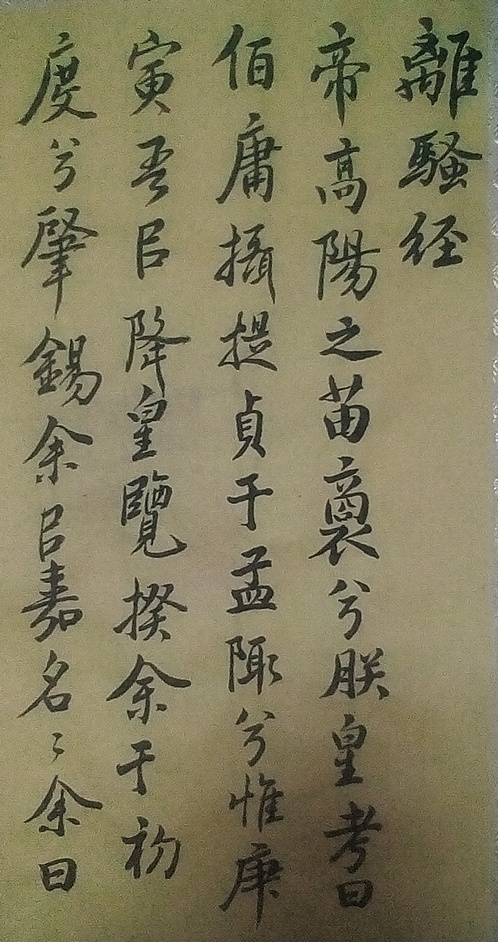 離騷經
帝高陽之苗裔兮朕皇考曰
佰庸攝提貞于孟陬兮惟庚
寅吾㠯降皇覽揆余于初
度兮肇錫余㠯嘉名〻余曰